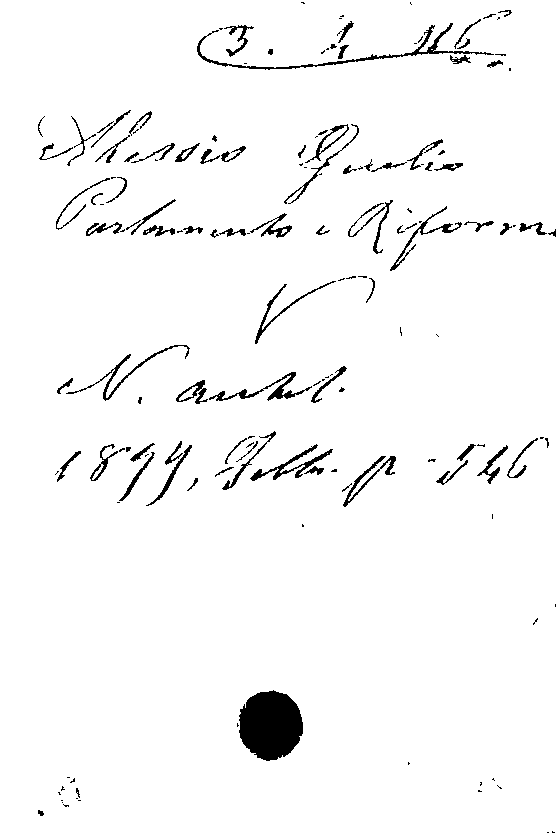 3. 4 116
Alessio Giulio
Parlamento e Riforme
V
N. antol.
1899, Febbr. p - 546